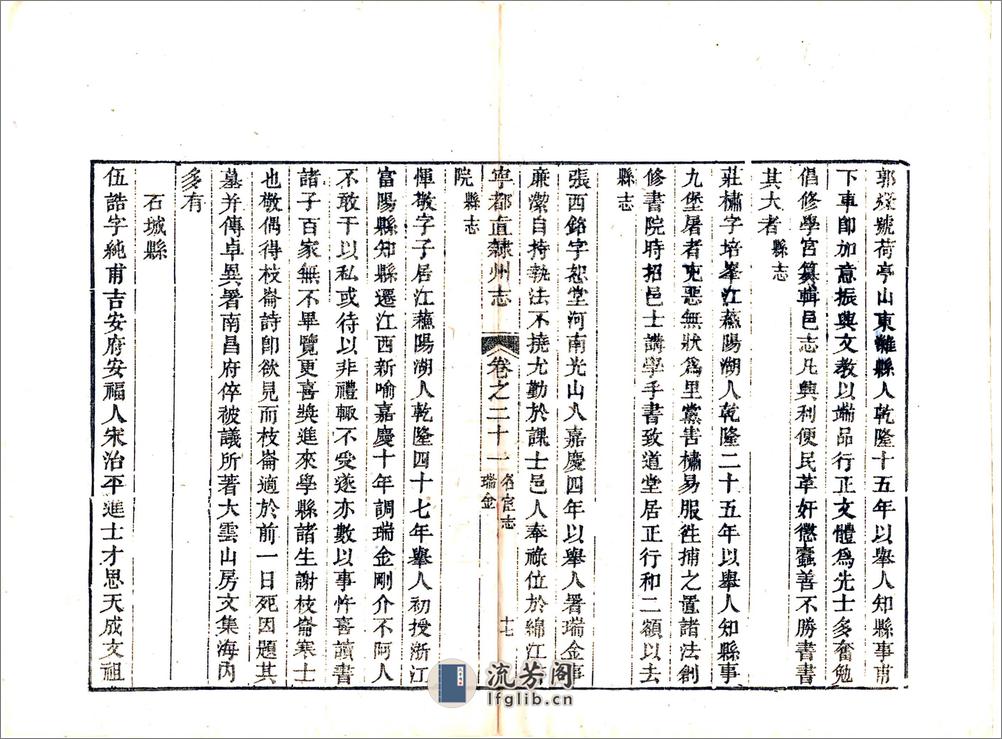 郭燦號荷亭山東濰縣人乾隆十五年以舉人知縣事甫
下車卽加意振興文教以端品行正文體爲先士多奮勉
倡修學宮纂輯邑志凡興利便民革奸懲蠹善不勝書書
其大者縣志
莊橚字培峯江蘇陽湖人乾隆二十五年以舉人知縣事
九堡屠者兇惡無狀爲里黨害橚易服徃捕之置諸法創
修書院時招邑士講學手書致道堂居正行和二額以去
縣志
張西銘字恕堂河南光山人嘉慶四年以舉人署瑞金事
廉潔自持執法不撓尤勤於課士邑人奉祿位於綿江書
院縣志
寧都直隸州志 卷之二十一 名宦志 瑞金 十七
惲敬字子居江蘇陽湖人乾隆四十七年舉人初授浙江
富陽縣知縣遷江西新喻嘉慶十年調瑞金剛介不阿人
不敢干以私或待以非禮輒不受遂亦數以事忤喜讀書
諸子百家無不畢覽更喜獎進來學縣諸生謝枝崙寒士
也敬偶得枝崙詩卽欲見而枝崙適於前一日死因題其
墓并傳卓異署南昌府倅被議所著大雲山房文集海內
多有
石城縣
伍誥字純甫吉安府安福人宋治平進士才思天成文祖
流芳阁
lfglib.cn